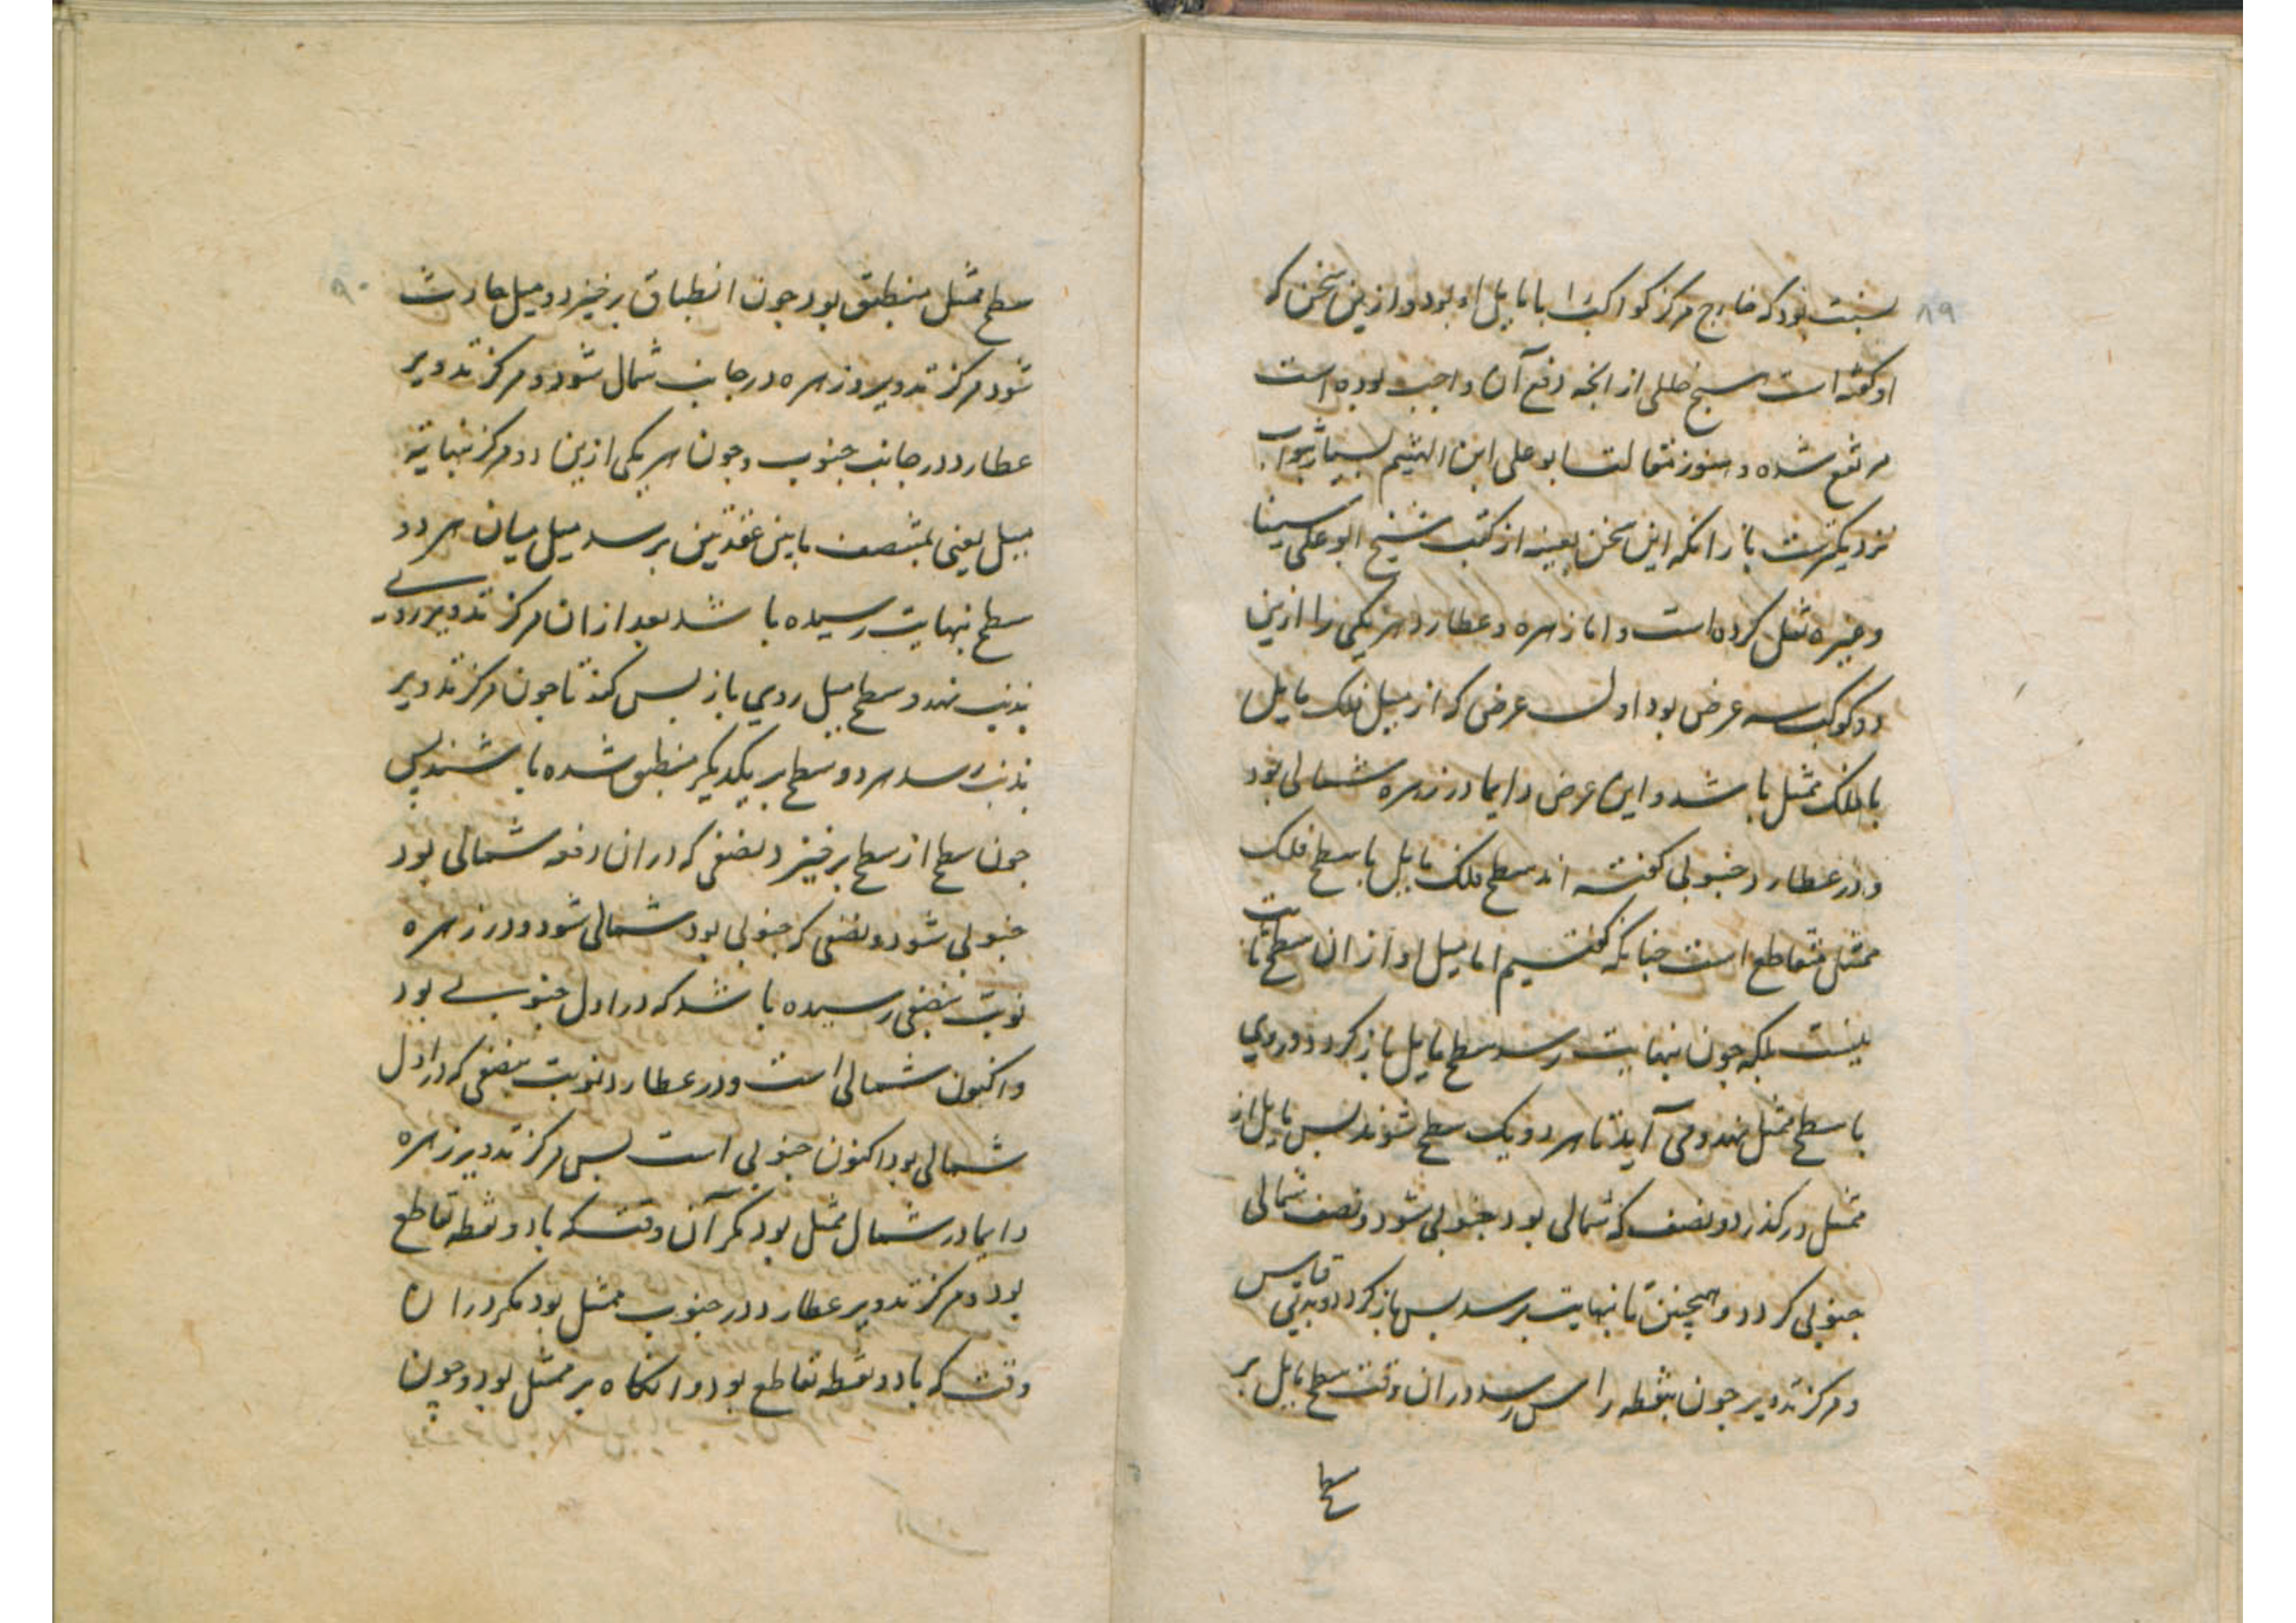 ۸۹
نسبت بود که خارج مرکز کواکب را با مایل او بود و ازین سخن که
او گفته است هیچ خللی از انچه دفع آن واجب بوده است
مرتفع نشده و هنوز مقالت ابو علی ابن الهیثم بسیار بثواب
نزدیکترست با زانکه این سخن بعینه از کتب شیخ ابو علی سینا
و غیره نقل کرده است و اما زهره و عطارد هر یکی را ازین
دو کوکب سه عرض بود اول عرض که از میل فلک مایل
با فلک ممثل باشد و این عرض دایما در زهره شمالی بود
و در عطارد جنوبی گفته اند سطح فلک مایل با سطح فلک
ممثل متقاطع است چنانکه گفتیم اما میل او از ان سطح ثابت
نیست بلکه چون بنهایت رسد سطح مایل باز کردد و روی
با سطح ممثل نهد و می آید تا هر دو یک سطح شوند بس مایل از
ممثل درکذرد و نصف که شمالی بود جنوبی شود و نصف شمالی
جنوبی کردد و همچنین تا بنهایت برسد بس باز کردد
و مرکز تدویر چون بنقطه راس رسد در ان وقت سطح مایل بر
سطح
۹۰
سطح ممثل منطبق بود چون انطباق برخیزد و میل حادث
شود مرکز تدویر زهره در جانب شمال شود و مرکز تدویر
عطارد در جانب جنوب و چون هر یکی ازین دو مرکز بنهایة
میل یعنی بمنتصف ما بین عقدتین برسد میل میان هر دو
سطح بنهایت رسیده باشد بعد از ان مرکز تدویر روی
بذنب نهد و سطح میل روی باز بس کند تا چون مرکز تدویر
بذنب رسد هر دو سطح بر یکدیکر منطبق شده باشند بس
چون سطح از سطح برخیزد نصفی که در ان دفعه شمالی بود
جنوبی شود و نصفی که جنوبی بود شمالی شود و در زهره
نوبت بنصفی رسیده باشد که در اول جنوبی بود
و اکنون شمالی است و در عطارد نوبت بنصفی که در اول
شمالی بود اکنون جنوبی است بس مرکز تدویر زهره
دایما در شمال ممثل بود مکر آن وقت که با دو نقطه تقاطع
بود و مرکز تدویر عطارد در جنوب ممثل بود مکر در ان
وقت که با دو نقطه تقاطع بود و انکاه بر ممثل بود و چون